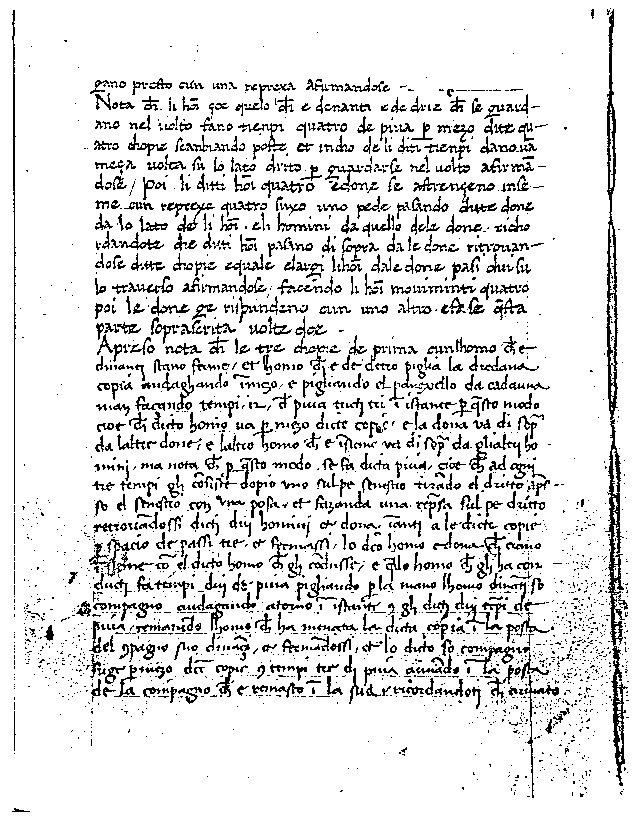 gano presto cun una represa afirmandose
Nota ch̄ li hōi çoe quelo ch̄ e denanti e de drie ch̄ se guard-
ano nel volto fano tienpi quatro de piva p̱ mezo dite qu-
atro chopie scanbiando poste, et indrio de li diti tienpi dano.ūa
meça volta su lo lato drito p̱ guardarse nel volto afirmā-
dose / Poi li ditti hōi quatro e done se astrengeno inse-
me cun represe quatro suxo uno pede pasando ditte done
da lo lato de li hōi. e li homini da quello dele done. richo
rdandote che diti hōi pasano di sopra da le done ritrovan-
dose ditte chopie equale e largi li hōi dale done pasi dui su
lo traverso afirmandose. facendo li hōi moviminti quatro
poi le done ge rispundeno cun uno altro. e fase q̄sta
parte soprascrita volte doe.
Apreso nota ch̄ le tre chopie de prima cun lhomo ch̄ e
dinanti stano ferme, et lhomo ch̄ e de detro piglia la dredana
copia andaghando inmezo, e pigliando el par da cadauna
man façando tempi di piva tuti tri ī istante p̱ q̄sto modo
cioe ch̄ dicto homo va p̱ mezo dicte copie, e la dona va di sop̄
da laltre done, e laltro homo ch̄ e īsieme va di sop̄ da gli altri ho
mini, ma nota ch̄ p̱ q̄sto modo. se fa dicta piva, cioe ch̄ ad ogni
tre tempi gli dopio uno sul pe senestro tirādo el dritto ap̄s
so el senestro con una posa, et fazanda una rep̄sa sul pe dritto
retrovādossi dicti dui homini e dona īanti a le dicte copie
p̱ spacio de passi tre, e fermassi, lo dc̄o homo e dona ch̄ erano
īsieme cō el dicto homo ch̄ gli cōdusse, e q̄llo homo ch̄ gli ha con
ducti fa tempi dui de piva pigliando p̱ la mano lhomo dinanti so
compagno andagando atorno ī istante gli dicti dui tēpi de
piva, remanēdo lhomo ch̄ ha menata la dicta copia ī la posta
del 9pagno suo dinanzi, e fermādossi, e lo dicto so compagno
p̱ mezo dc̄te copie 9 tempi tre di piva ī la posta
de la compagno ch̄ e remasto ī la sua, ricordandoti ch̄